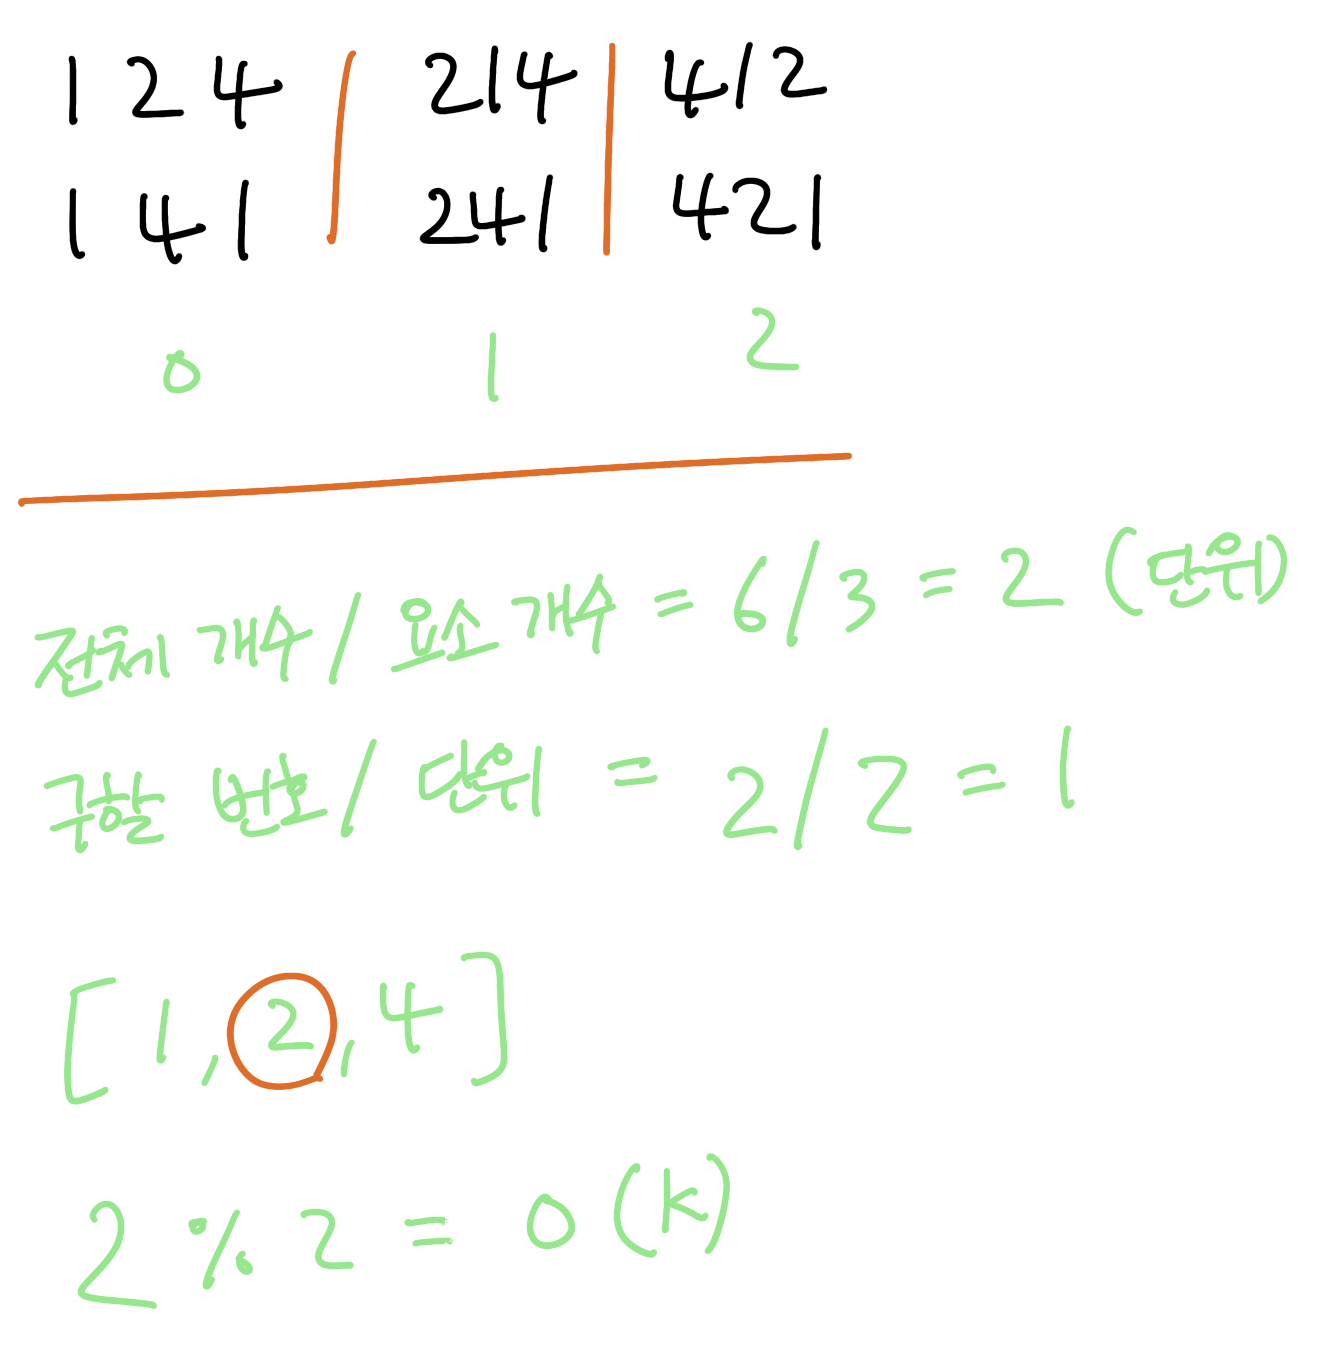 1 2 4 214 412
1 4 1 241 421
0 1 2
전체 개수 / 요소 개수 = 6/3 = 2 (단위)
구할 번호 / 단위 = 2/2 = 1
[1, 2, 4]
2 % 2 = 0 (k)